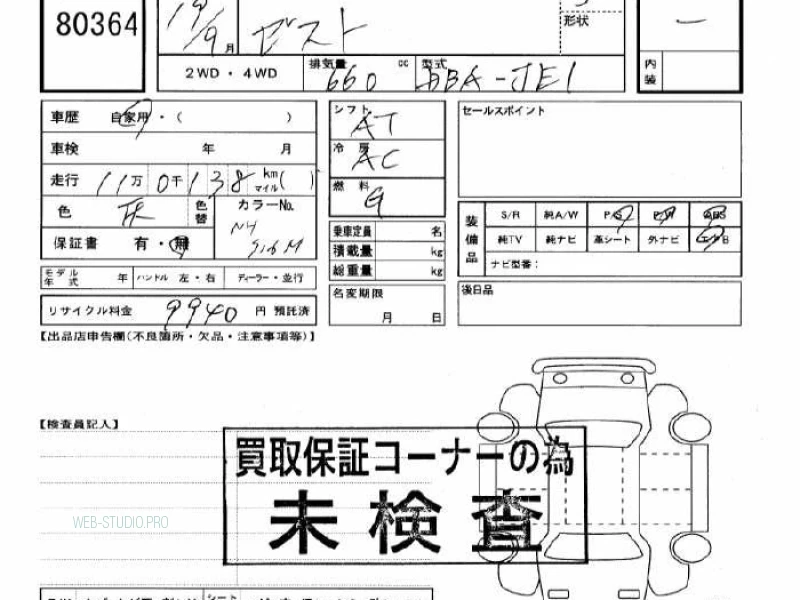 80364
19/9 月 ゼスト 形状 —
2WD・4WD 排気量 660 cc 型式 DBA-JE1 内装
車歴 自家用・( ) シフト AT セールスポイント
車検 年 月 冷房 AC
走行 11万 0千138 km マイル ( ) 燃料 G
色 灰 色替 カラーNo. NH 916M
保証書 有・無
装備品 S/R 純A/W P/S P/W ABS
純TV 純ナビ 革シート 外ナビ エアB
ナビ型番:
乗車定員 名
積載量 kg
総重量 kg
モデル年式 年 ハンドル 左・右 ディーラー・並行
名変期限 月 日
後日品
リサイクル料金 9940 円 預託済
【出品店申告欄(不良箇所・欠品・注意事項等)】
【検査員記入】
買取保証コーナーの為
未検査
WEB-STUDIO.PRO